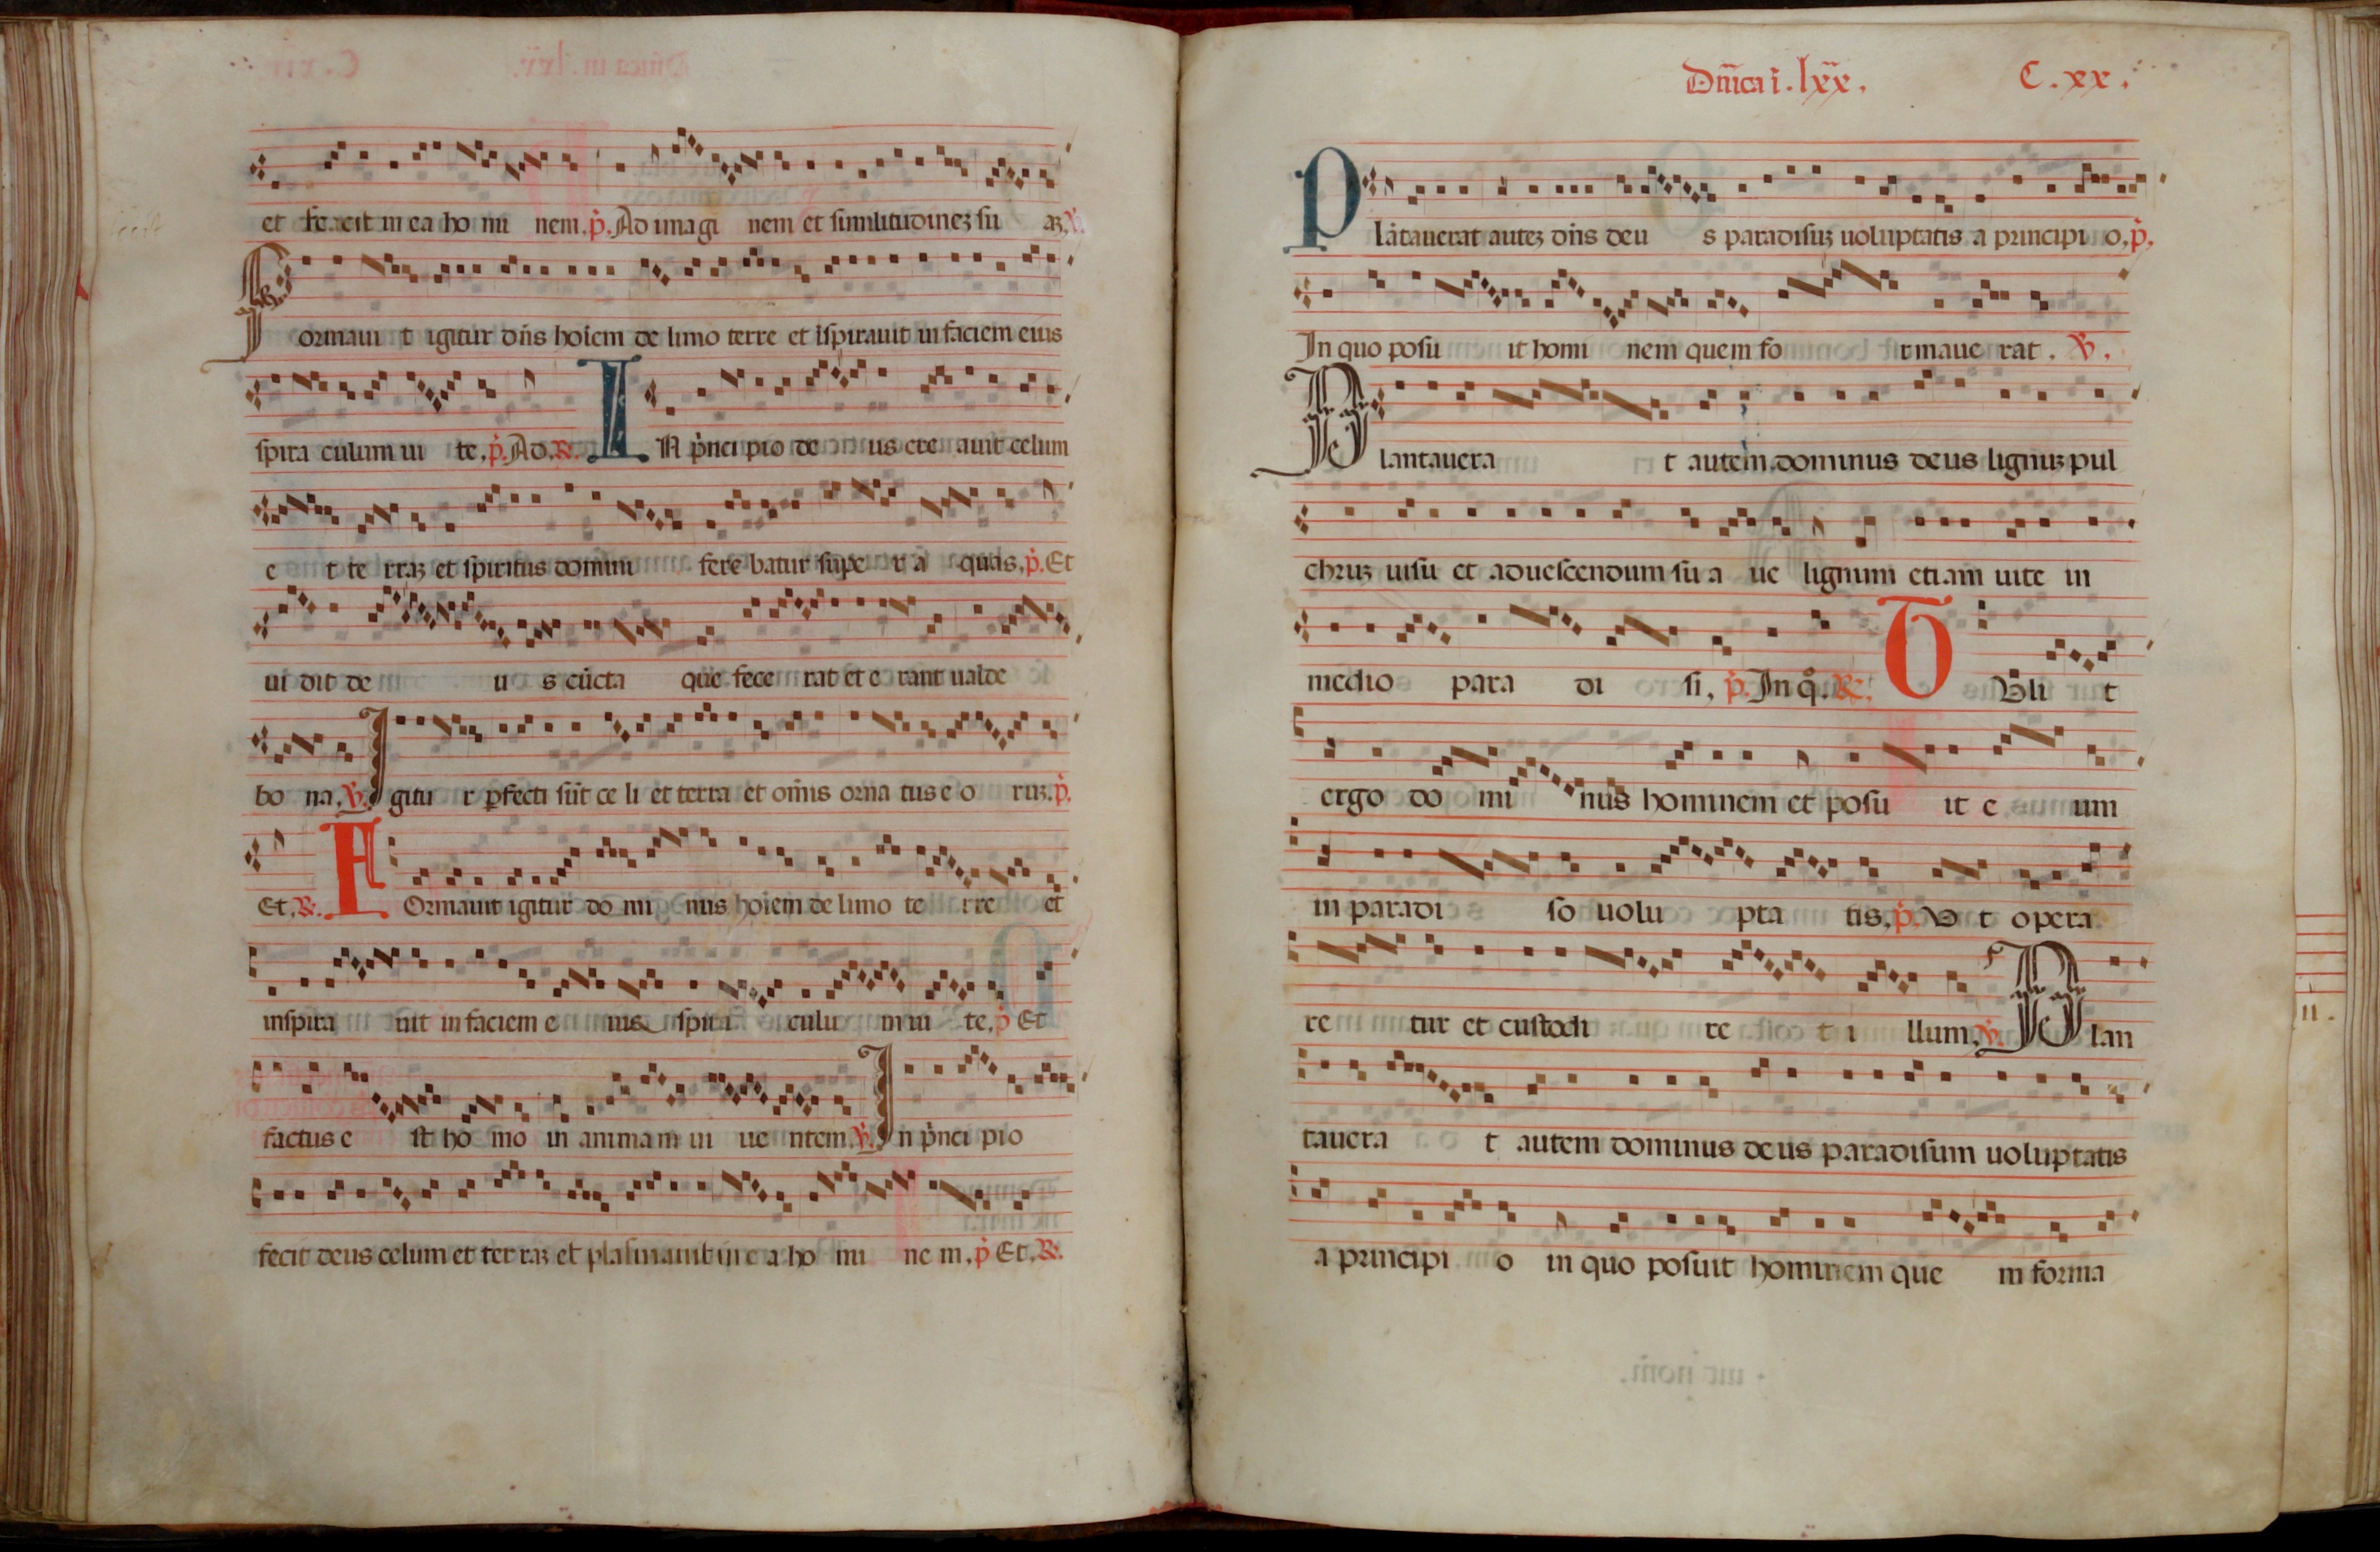 et fe cit in ea ho mi nem. p. Ad imagi nem et similitudineʒ su aʒ. ℣.
Formaui t igitur dn̄s hoīem de limo terre et īspirauit in faciem eius
spira culum ui te. p. Ad. ℟. IN pͥncipio de us cre auit celum
e t te rraʒ et spiritus domini fere batur supe r a quas. p. Et
ui dit de u s cūcta que fece rat et e rant ualde
bo na. ℣. Igitu r ꝑfecti sūt ce li et terra et om̄is orna tus e o ruʒ. p.
Et. ℟. FOrmauit igitur do mi nus hoīem de limo te rre et
inspira uit in faciem e ius spira culu m ui te. p Et
factus e st ho mo in animam ui ue ntem. ℣. In pͥnci pio
fecit deus celum et ter raʒ et plasmauit in e a ho mi ne m. p Et. ℟.
Dn̄ica ī. lxx. C. xx.
Plātauerat auteʒ dn̄s deu s paradisuʒ uoluptatis a principi o. p.
In quo posu it homi nem quem fo rmaue rat. ℣.
Plantauera t autem dominus deus lignuʒ pul
chruʒ uisu et aduescendum su a ue lignum etiam uite in
medio para di si. p. In qͦ. ℟. TUli t
ergo do mi nus hominem et posu it e um
in paradi so uolu pta tis. p. U t opera
re tur et custodi re t i llum. ℣. Plan
tauera t autem dominus deus paradisum uoluptatis
a principi o in quo posuit hominem que m forma